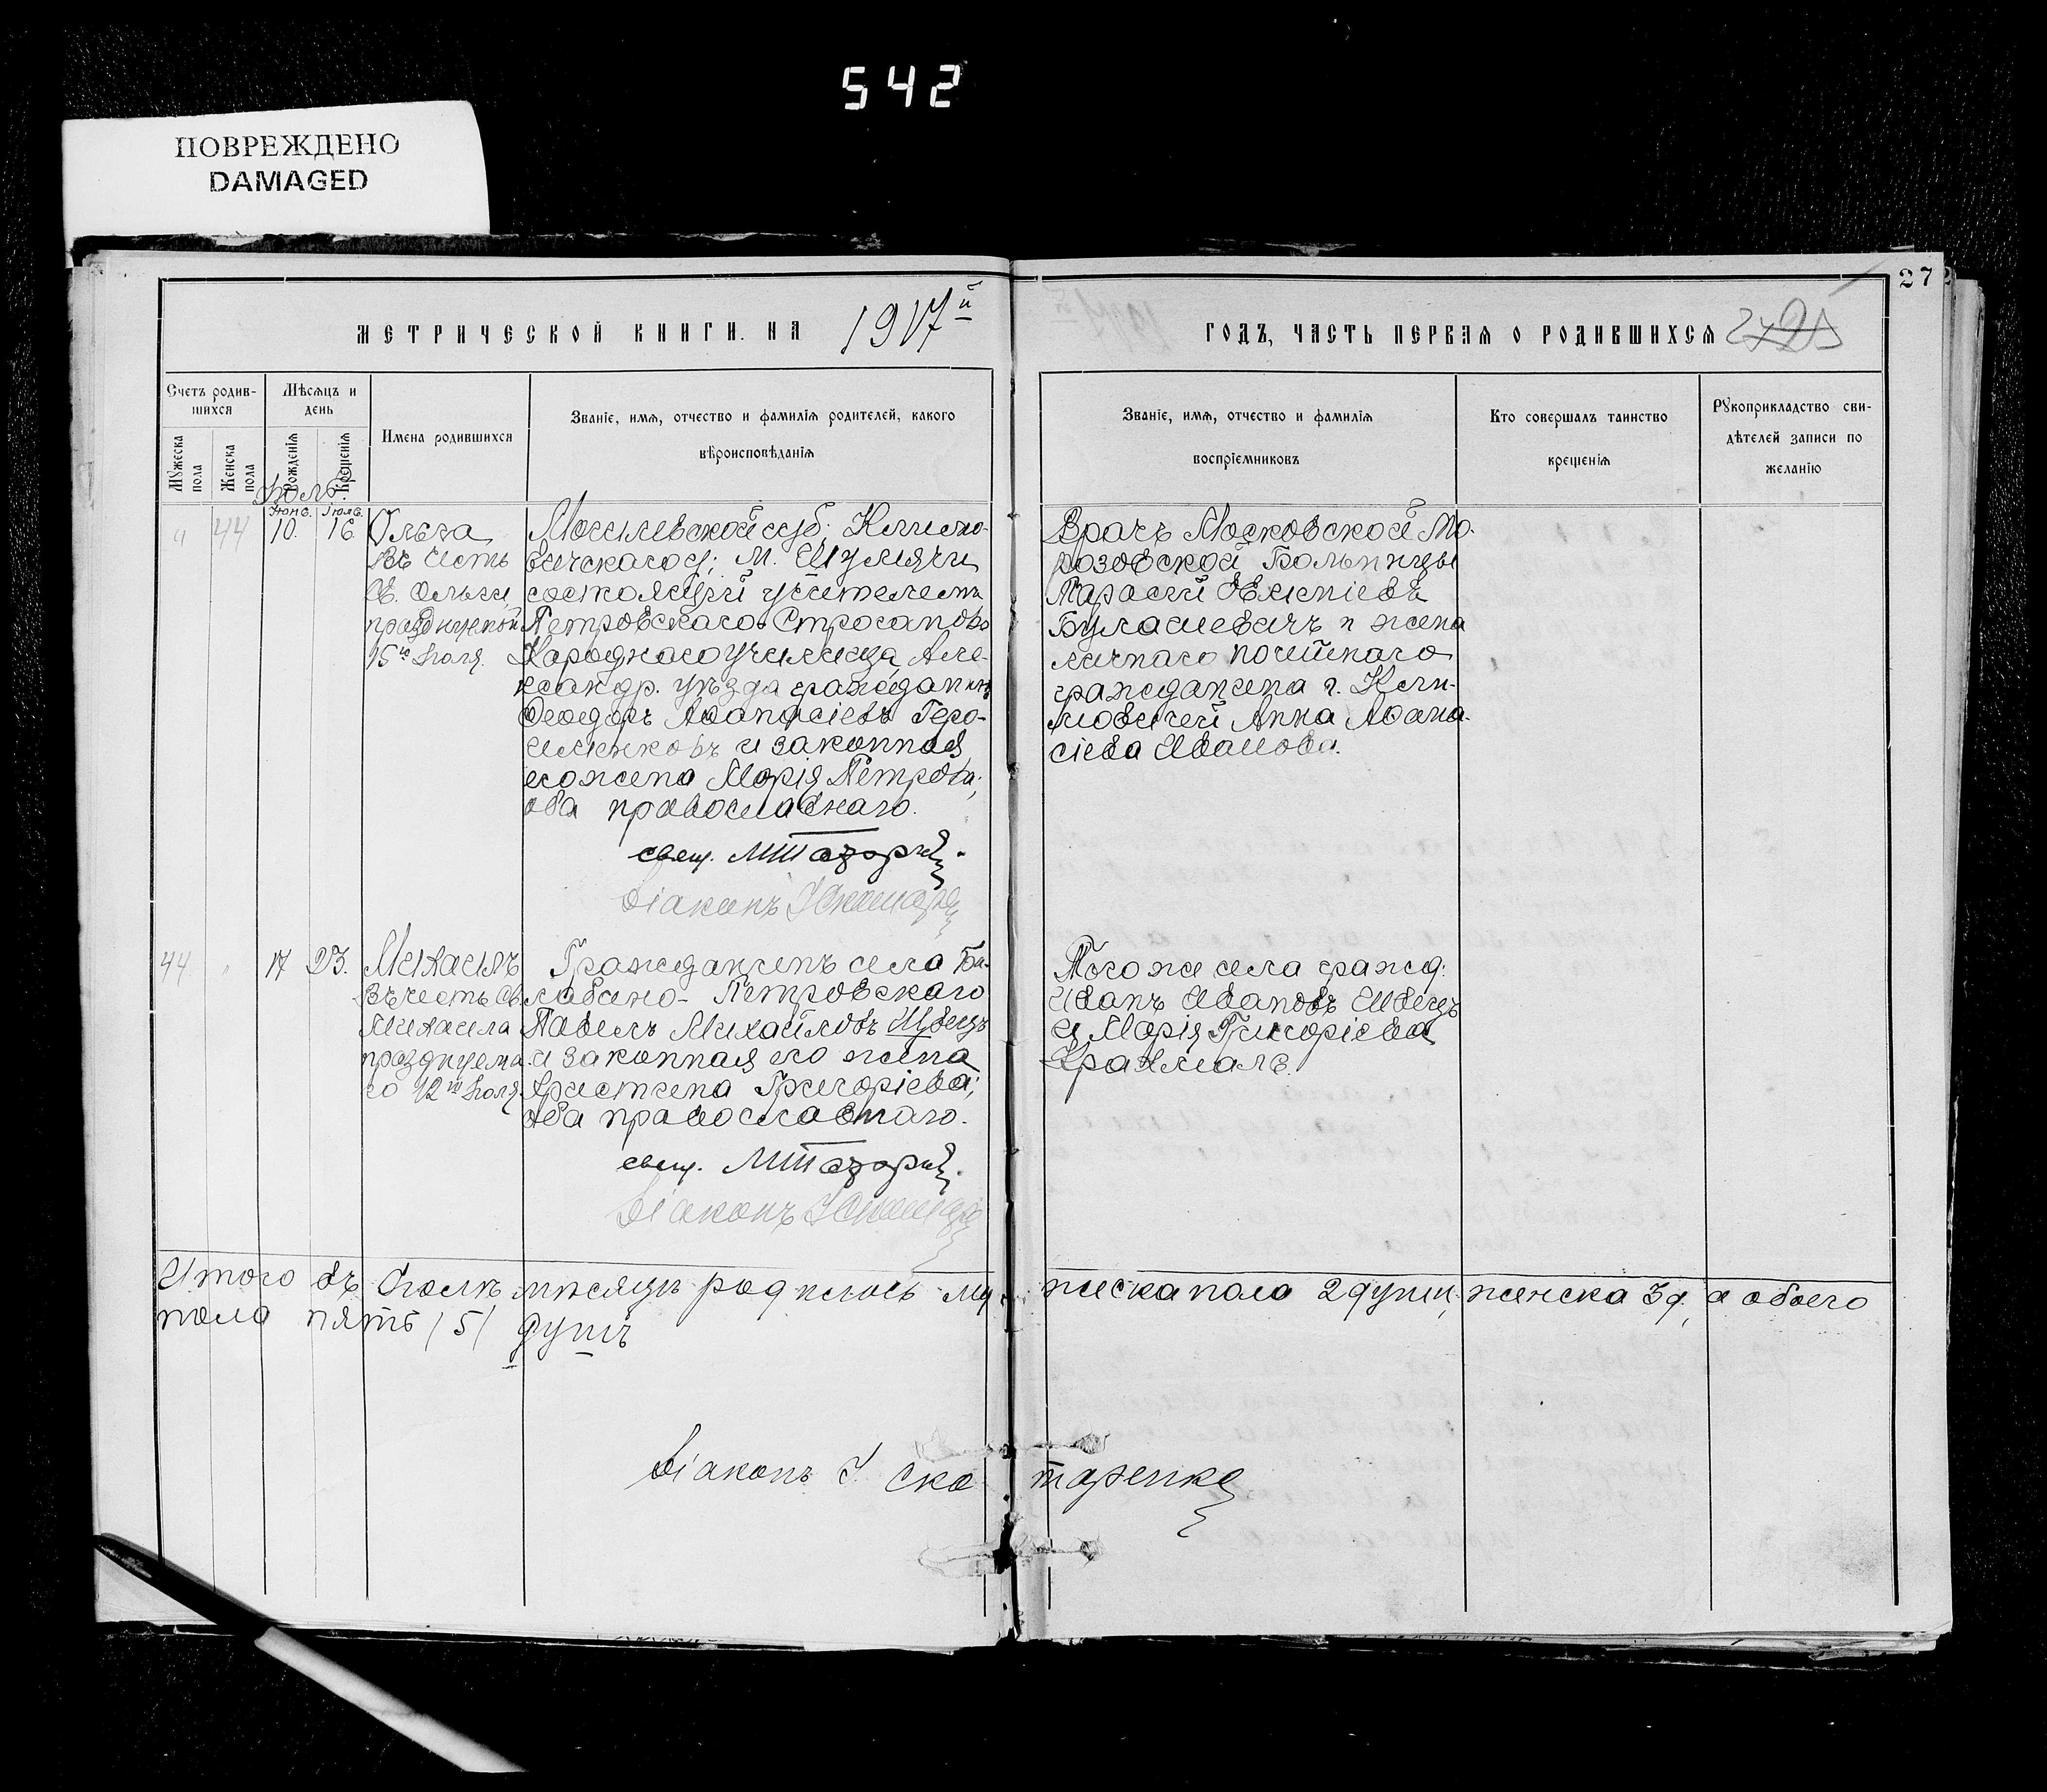 542
ПОВРЕЖДЕНО
DAMAGED
27
МЕТРИЧЕСКОЙ КНИГИ НА 1917й
ГОДЪ, ЧАСТЬ ПЕРВАЯ О РОДИВШИХСЯ
Счетъ родив-
шихся
Мѣсяцъ и
день
Мужеска
пола
Женска
пола
Рожденія
Крещенія
Имена родившихся
Званіе, имя, отчество и фамилія родителей, какого
вѣроисповѣданія
Званіе, имя, отчество и фамилія
воспріемниковъ
Кто совершалъ таинство
крещенія
Рукоприкладство сви-
дѣтелей записи по
желанію
Іюль.
Іюнь. Іюль.
" 44 10. 16
Ольга
Въ честь
Св. Ольги,
15го Іюля.
Могилевской губ; Климо-
вичскаго у; м. Шумячи
состоящій учителемъ
Петровскаго
Народнаго училища, Але-
ксандр. уѣзда гражданинъ
Феодоръ Аѳанасіевъ Геро-
и законная
его жена Марія Петрова;
оба православнаго.
свящ.
Діаконъ
Врачъ Московской Мо-
розовской Больницы
и жена
личнаго почетнаго
гражданина г. Кли-
мовичей Анна Аѳана-
сіева Иванова.
44 " 17 23.
Михаилъ
Въ честь Св.
Михаила
празднуема-
го 12го Іюля
Гражданинъ села Ба-
лабино-Петровскаго
Павелъ Михайловъ Швецъ
и законная его жена
Христина Григоріева;
оба православнаго.
свящ.
Діаконъ
Того же села гражд.
Иванъ Ивановъ Швецъ
и Марія Григоріева
Итого въ Іюлѣ мѣсяцѣ родилось му-жеска пола 2 души, женска 3 д., а обоего
пола пять /5/ душъ
Діаконъ І. Скотаренко